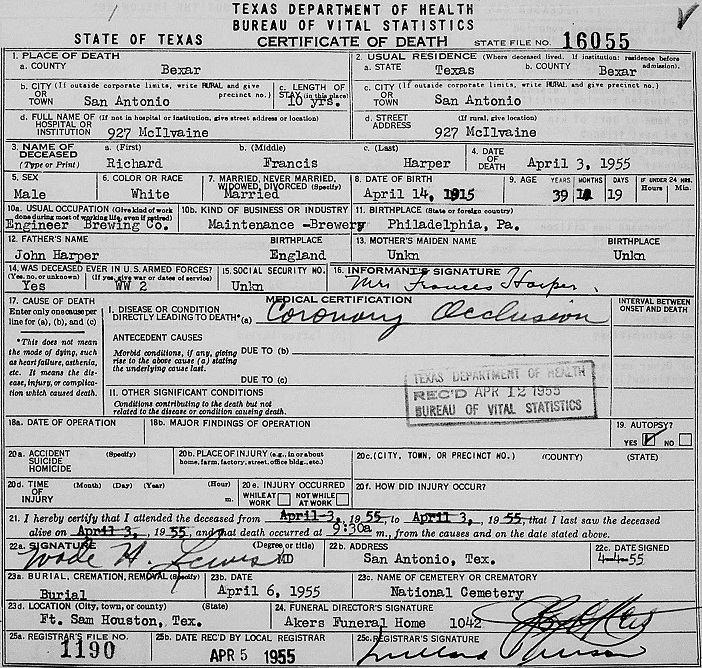 TEXAS DEPARTMENT OF HEALTH
BUREAU OF VITAL STATISTICS
STATE OF TEXAS CERTIFICATE OF DEATH STATE FILE NO. 16055
1. PLACE OF DEATH 2. USUAL RESIDENCE (Where deceased lived. If institution: residence before admission).
a. COUNTY Bexar a. STATE Texas b. COUNTY Bexar
b. CITY (If outside corporate limits, write RURAL and give precinct no.) OR TOWN San Antonio c. LENGTH OF STAY (in this place) 10 yrs. c. CITY (If outside corporate limits, write RURAL and give precinct no.) OR TOWN San Antonio
d. FULL NAME OF (If not in hospital or institution, give street address or location) HOSPITAL OR INSTITUTION 927 McIlvaine d. STREET ADDRESS (If rural, give location) 927 McIlvaine
3. NAME OF DECEASED (Type or Print) a. (First) Richard b. (Middle) Francis c. (Last) Harper 4. DATE OF DEATH April 3, 1955
5. SEX Male 6. COLOR OR RACE White 7. MARRIED, NEVER MARRIED, WIDOWED, DIVORCED (Specify) Married 8. DATE OF BIRTH April 14, 1915 9. AGE YEARS 39 MONTHS DAYS 19 IF UNDER 24 HRS. Hours Min.
10a. USUAL OCCUPATION (Give kind of work done during most of working life, even if retired) Engineer Brewing Co. 10b. KIND OF BUSINESS OR INDUSTRY Maintenance -Brewery 11. BIRTHPLACE (State or foreign country) Philadelphia, Pa.
12. FATHER'S NAME John Harper BIRTHPLACE England 13. MOTHER'S MAIDEN NAME Unkn BIRTHPLACE Unkn
14. WAS DECEASED EVER IN U.S. ARMED FORCES? (Yes, no, or unknown) Yes (If yes, give war or dates of service) WW 2 15. SOCIAL SECURITY NO. Unkn 16. INFORMANT'S SIGNATURE Mrs Frances Harper.
17. CAUSE OF DEATH MEDICAL CERTIFICATION INTERVAL BETWEEN ONSET AND DEATH
Enter only one cause per line for (a), (b), and (c)
I. DISEASE OR CONDITION DIRECTLY LEADING TO DEATH* (a) Coronary Occlusion
*This does not mean the mode of dying, such as heart failure, asthenia, etc. It means the disease, injury, or complication which caused death.
ANTECEDENT CAUSES
Morbid conditions, if any, giving rise to the above cause (a) stating the underlying cause last. DUE TO (b)
DUE TO (c)
II. OTHER SIGNIFICANT CONDITIONS
Conditions contributing to the death but not related to the disease or condition causing death.
TEXAS DEPARTMENT OF HEALTH
REC'D APR 12 1955
BUREAU OF VITAL STATISTICS
18a. DATE OF OPERATION 18b. MAJOR FINDINGS OF OPERATION 19. AUTOPSY?
YES NO
20a. ACCIDENT SUICIDE HOMICIDE (Specify) 20b. PLACE OF INJURY (e.g., in or about home, farm, factory, street, office bldg., etc.) 20c. (CITY, TOWN, OR PRECINCT NO.) (COUNTY) (STATE)
20d. TIME OF INJURY (Month) (Day) (Year) (Hour) m. 20e. INJURY OCCURRED WHILE AT WORK NOT WHILE AT WORK 20f. HOW DID INJURY OCCUR?
21. I hereby certify that I attended the deceased from April 3, 19 55, to April 3, 19 55, that I last saw the deceased
alive on April 3, 19 55, and that death occurred at 9:30a m., from the causes and on the date stated above.
22a. SIGNATURE Wade H. Lewis (Degree or title) MD 22b. ADDRESS San Antonio, Tex. 22c. DATE SIGNED 4-4-55
23a. BURIAL, CREMATION, REMOVAL (Specify) Burial 23b. DATE April 6, 1955 23c. NAME OF CEMETERY OR CREMATORY National Cemetery
23d. LOCATION (City, town, or county) (State) Ft. Sam Houston, Tex. 24. FUNERAL DIRECTOR'S SIGNATURE Akers Funeral Home 1042
25a. REGISTRAR'S FILE NO. 1190 25b. DATE REC'D BY LOCAL REGISTRAR APR 5 1955 25c. REGISTRAR'S SIGNATURE